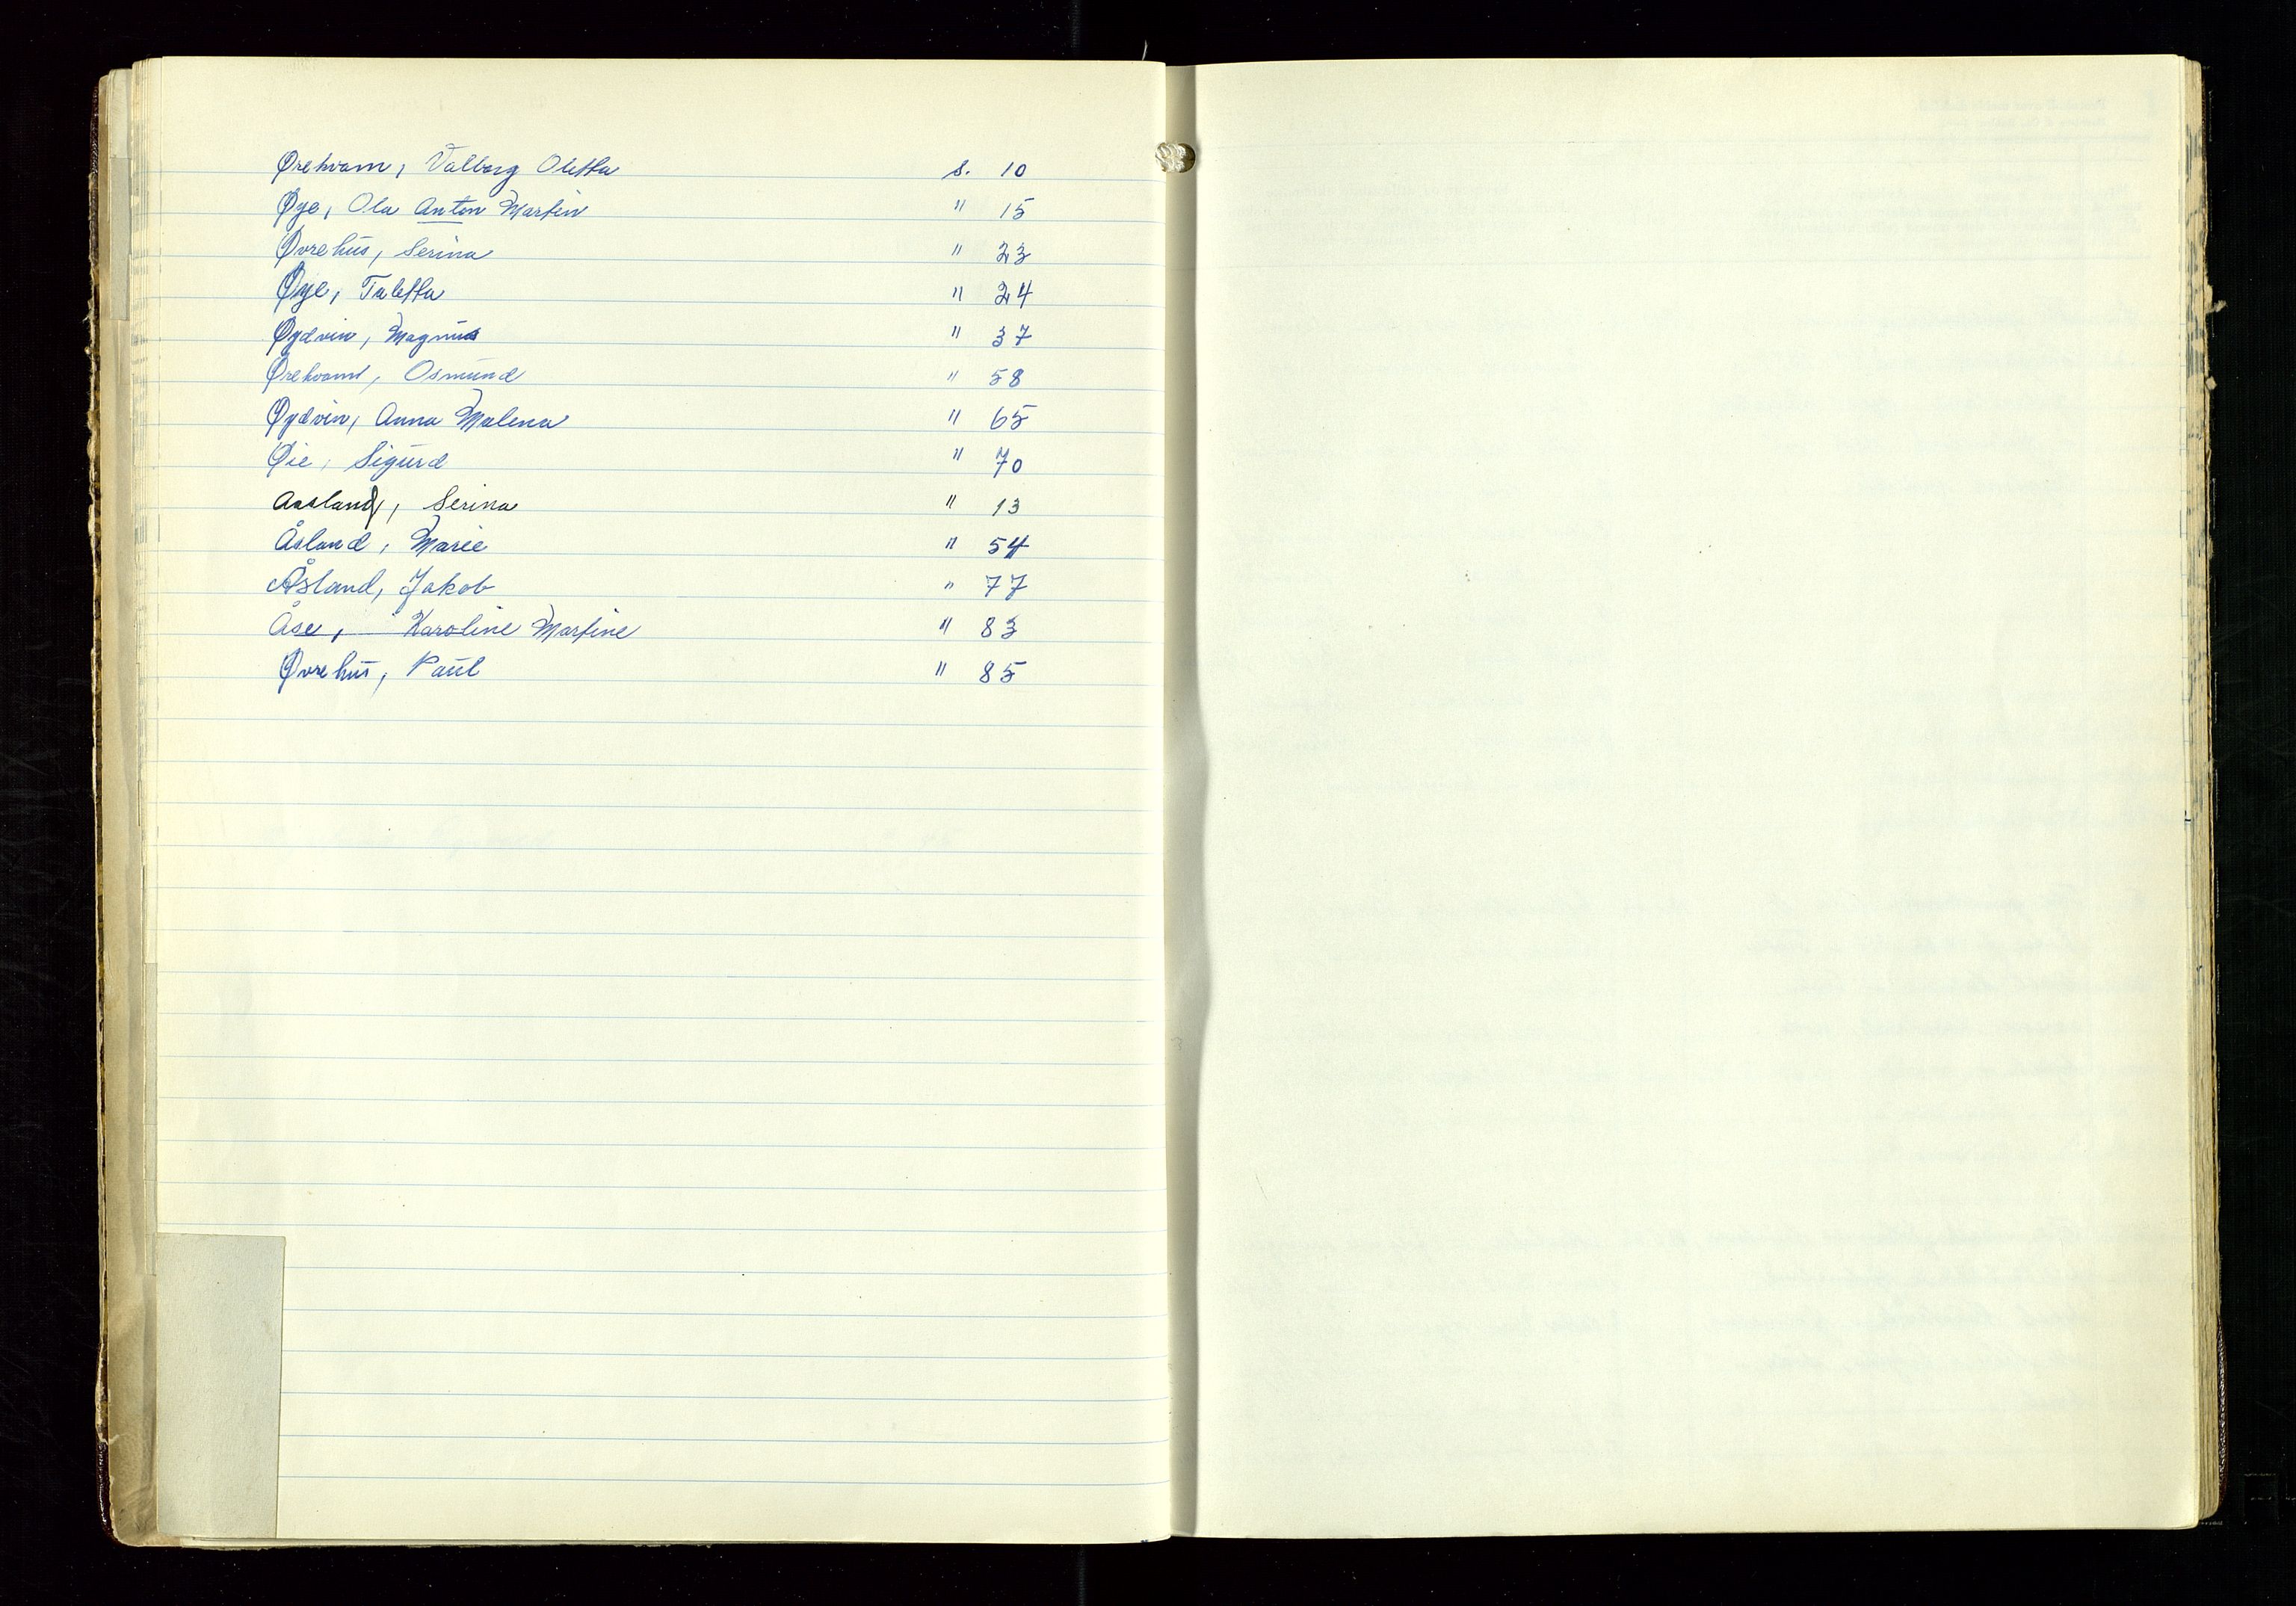 Ørekvam, Valborg Oletta s. 10
Øye, Ola Anton Martin " 15
Øvrehus, Serina " 23
Øye, Taletta " 24
Øydvin, Magnus " 37
Ørekvam, Osmund " 58
Øydvin, Anna Malena " 65
Øie, Sigurd " 70
Aasland, Serina " 13
Åsland, Marie " 54
Åsland, Jakob " 77
Åse, Karoline Martine " 83
Øvrehus, Paul " 85